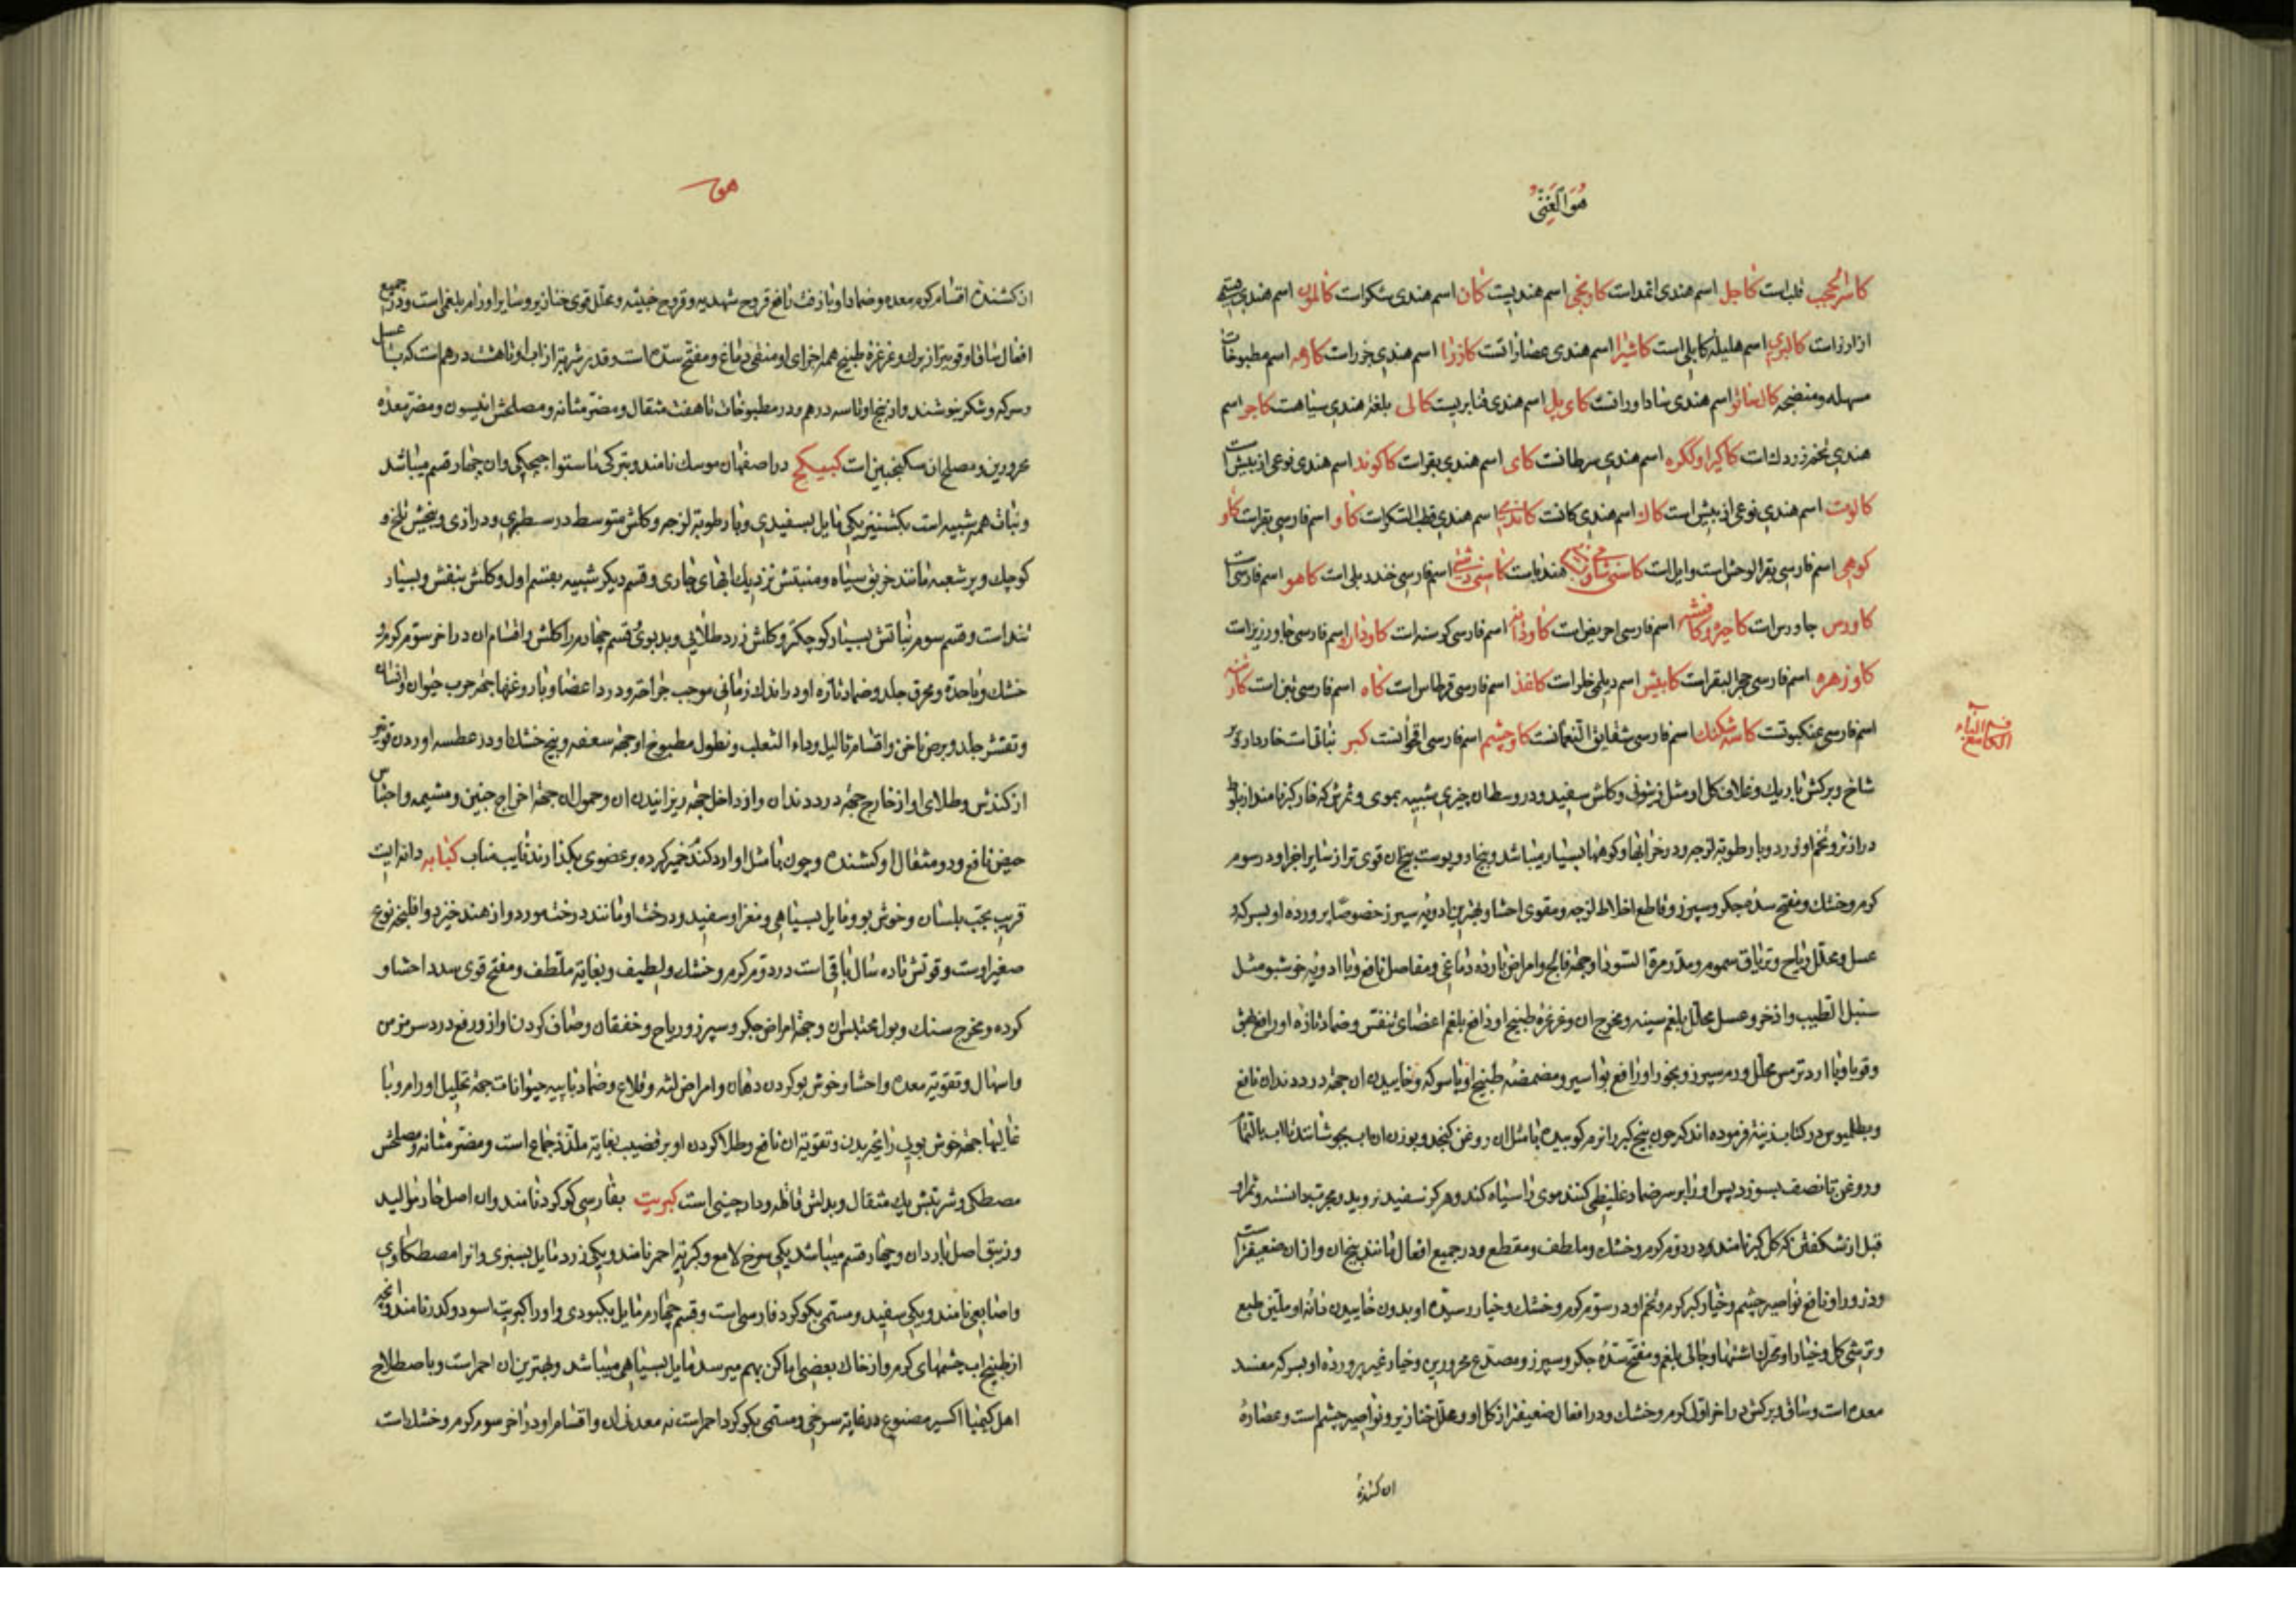 هُوَ الغَنِیُّ
کاسر الحجب قلب است کاجل اسم هندی اثمد است کاریخی اسم هندیست کان اسم هندی شکر است کالمون اسم هندی قسمی
از ارز است کالبری اسم هلیله کابلی است کاشیرا اسم هندی عصاراتست کازرا اسم هندی جزر است کارهه اسم مطبوخات
مسهله و منضجه کالسانو اسم هندی ساداورانست کای پل اسم هندی قنابریست کالی بلغة هندی سیاهست کاجر اسم
هندی تخم زردک است کاکیرا و لکره اسم هندی سرطانست کای اسم هندی بقر است کاکوند اسم هندی نوعی از بیش است
کالوت اسم هندی نوعی از بیش است کان اسم هندی کانست کاندی اسم هندی قطب السکر است کاو اسم فارسی بقر است کاو
کوهی اسم فارسی بقر الوحش است و ایل است کاسنی شامی هندباست کاسنی دشتی اسم فارسی خندریلی است کاهو اسم فارسی است
کاورس جاورس است کاجیره و کافشه اسم فارسی احریض است کاودانه اسم فارسی کرسنه است کاوزاد اسم فارسی جاورزیر است
کاوزهره اسم فارسی حجر البقر است کابیش اسم دیلمی خلر است کاغذ اسم فارسی قرطاس است کاه اسم فارسی تبن است کارتنه
اسم فارسی عنکبوتست کاسه شکنک اسم فارسی شقایق النعمانست کاوچشم اسم فارسی اقحوانست کبر نباتی است خاردار و پر
فصل الکاف مع الباء
شاخ و برکش باریک و غلاف کل او مثل زیتونی و کلش سفید و در وسط آن چیزی شبیه بموی و ثمرش که خیار کبر نامند از بلوط
درازتر و تخم او زرد و با رطوبة لزجه و در خرابها و کوهها بسیار میباشد و بیخ او و پوست بیخ آن قوی تر از سایر اجزا و در سوم
کرم و خشک و مفتح سده جکر و سپرز و قاطع اخلاط لزجه و مقوی احشا و بهترین ادویه سپرز خصوصا پرورده او بسرکه و
عسل و محلل ریاح و تریاق سموم و مدر مرة السودا و جهة فالج و امراض بارده دماغی و مفاصل نافع و با ادویه خوشبو مثل
سنبل الطیب و اذخر و عسل محلل بلغم سینه و مخرج آن و غرغره طبیخ او رافع بلغم اعضای تنفس و ضماد تازه او رافع بهق
و قوبا و با ارد ترمس محلل ورم سپرز و بخور او رافع بواسیر و مضمضه طبیخ او با سرکه و خاییدن آن جهة درد دندان نافع
و بطلمیوس در کتاب زینة فرموده اند که چون بیخ کبر را نرم کوبیده با مثل آن روغن کنجد و بوزن آن اب بجوشانند تا اب بالتمام
و روغن تا نصف بسوزد پس او را بر سر ضماد غلیظی کنند موی را سیاه کند و هرکز سفید نروید و مجرب دانسته و ثمر او
قبل از شکفتن که کل کبر نامند در دوم کرم و خشک و ملطف و مقطع و در جمیع افعال مانند بیخ آن و از آن ضعیفتر است
و ذرور او نافع نواصیر چشم و خیار کبر کرم و تخم او در سوم کرم و خشک و خیار رسیده او بدون خاییدن دانه او ملین طبع
و ترشی کل و خیار او محرک اشتها و جالی بلغم و مفتح سده جکر و سپرز و مصدع محرورین و خیار غیر پرورده او بسرکه مفسد
معده است و ساق و برکش در اخر اول کرم و خشک و در افعال ضعیفتر از کل او و محلل خنازیر و نواصیر چشم است و عصاره
ان کشنده
هو
ان کشنده اقسام کرم معده و ضماد او با زفت نافع قروح شهدیه و قروح خبیثه و محلل قوی خنازیر و سایر اورام بلغمی است و در جمیع
افعال ساق او قویتر از برک و غرغره طبیخ همه اجزای او منقی دماغ و مفتح سده است و قدر شربة از اب او تا هشت درهم است که با عسل
و سرکه و شکر بنوشند و از بیخ او تا سه درهم و در مطبوخات تا هفت مثقال و مضر مثانه و مصلحش انیسون و مضر معده
محرورین و مصلح آن سکنجبین است کبیکج در اصفهان موسک نامند و بترکی ماستواجیچکی و ان چهار قسم میباشد
و نبات همه شبیه است بکشنیز یکی مایل بسفیدی و با رطوبة لزجه و کلش متوسط در سطبری و درازی و بیخش تلخ و
کوچک و پر شعبه مانند خربق سیاه و منبتش نزدیک ابهای جاری و قسم دیکر شبیه بقسم اول و کلش بنفش و بسیار
تند است و قسم سوم نباتش بسیار کوچکتر و کلش زرد طلایی و بدبوی و قسم چهارم را کلش و اقسام آن در اخر سوم کرم و
خشک و با حدة و محرق جلد و ضماد تازه او در اندک زمانی موجب جراحة و درد اعضا و با روغنها جهة جرب حیوان و انسان
و تقشر جلد و برص ناخن و اقسام ثالیل و داء الثعلب و نطول مطبوخ او جهة سعفه و بیخ خشک او در عطسه اوردن قویتر
از کندش و طلای او از خارج جهة درد دندان و از داخل جهة ریزانیدن آن و حمول آن جهة اخراج جنین و مشیمه و احتباس
حیض نافع و دو مثقال او کشنده و چون با مثل او ارد کندم خمیر کرده بر عضوی بکذارند نایب مناب کبابه دانه ایست
قریب بحب بلسان و خوش بو و مایل بسیاهی و مغز او سفید و درخت او مانند درخت مورد و از هند خیزد و افلنجه نوع
صغیر اوست و قوتش تا ده سال باقی است در دوم کرم و خشک و لطیف و بغایة ملطف و مفتح قوی سدد احشا و
کرده و مخرج سنک و بول محتبس آن و جهة امراض جکر و سپرز و ریاح و خفقان و صاف کردن اواز و رفع درد سر مزمن
و اسهال و تقویة معده و احشا و خوش بو کردن دهان و امراض لثه و قلاع و ضماد با پیه حیوانات جهة تحلیل اورام و با
غالیها جهة خوش بویی رایحه بدن و تقویة آن نافع و طلا کردن او بر قضیب بغایة ملذذ جماع است و مضر مثانه و مصلحش
مصطکی و شربتش یک مثقال و بدلش قاقله و دارچینی است کبریت بفارسی کوکرد نامند و ان اصل حار موالید
و زیبق اصل بارد آن و چهار قسم میباشد یکی سرخ لامع و کبریة احمر نامند و یکی زرد مایل بسبزی و انرا مصطکاوی
و اصابعی نامند و یکی سفید و مسمی بکوکرد فارسی است و قسم چهارم مایل بکبودی و او را کبریت اسود و کدر نامند و انچه
از طبیخ اب چشمهای کرم و از خاک بعضی اماکن بهم میرسد مایل بسیاهی میباشد و بهترین آن احمر است و باصطلاح
اهل کیمیا اکسیر مصنوع در غایة سرخی و مسمی بکوکرد احمر است نه معدنی آن و اقسام او در اخر سوم کرم و خشک است